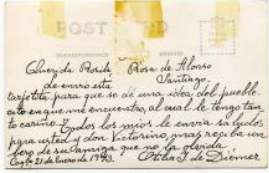 POST CARD
CORRESPONDENCE ADDRESS
Querida Rosita Rosa de Alonso
Le envío esta Santiago.
tarjetita para que se dé una idea del pueble-
cito en que me encuentro, al cual le tengo tan-
to cariño. Todos los míos le envía saludos
para usted y don Victorino, mas reciba un
de su amiga que no la olvida.
21 de Enero de 1943. Otilia J. de Diemer